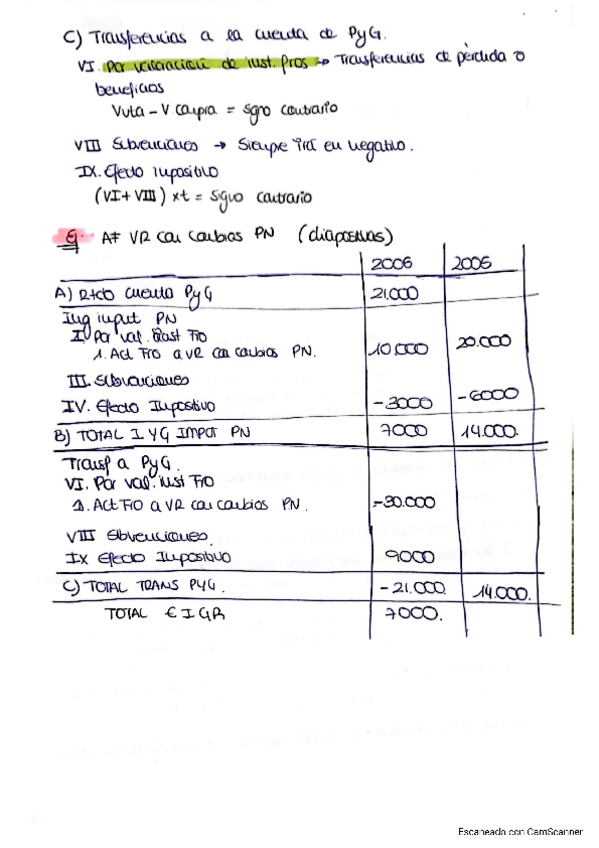 C) Transferencias a la cuenta de PyG.
VI. Por valoración de inst. fros → Transferencias de pérdida o
beneficios
Vvta - V compra = sgno contrario
VIII Subvenciones → Siempre irá en negativo.
IX. Efecto impositivo
(VI + VIII) x t = signo contrario
Ej. AF VR con cambios PN (diapositivas)
2006 2005
A) Rtdo cuenta PyG 21.000
Ing input PN
I. Por val. inst Fro
1. Act Fro a VR con cambios PN. 10.000 20.000
III. Subvenciones
IV. Efecto Impositivo -3000 -6000
B) TOTAL I y G IMPUT PN 7000 14.000.
Transf a PyG.
VI. Por val. inst Fro
1. Act Fro a VR con cambios PN. -30.000
VIII Subvenciones
IX Efecto Impositivo 9000
C) TOTAL TRANS PYG. -21.000. 14.000.
TOTAL E I G R 7000.
Escaneado con CamScanner